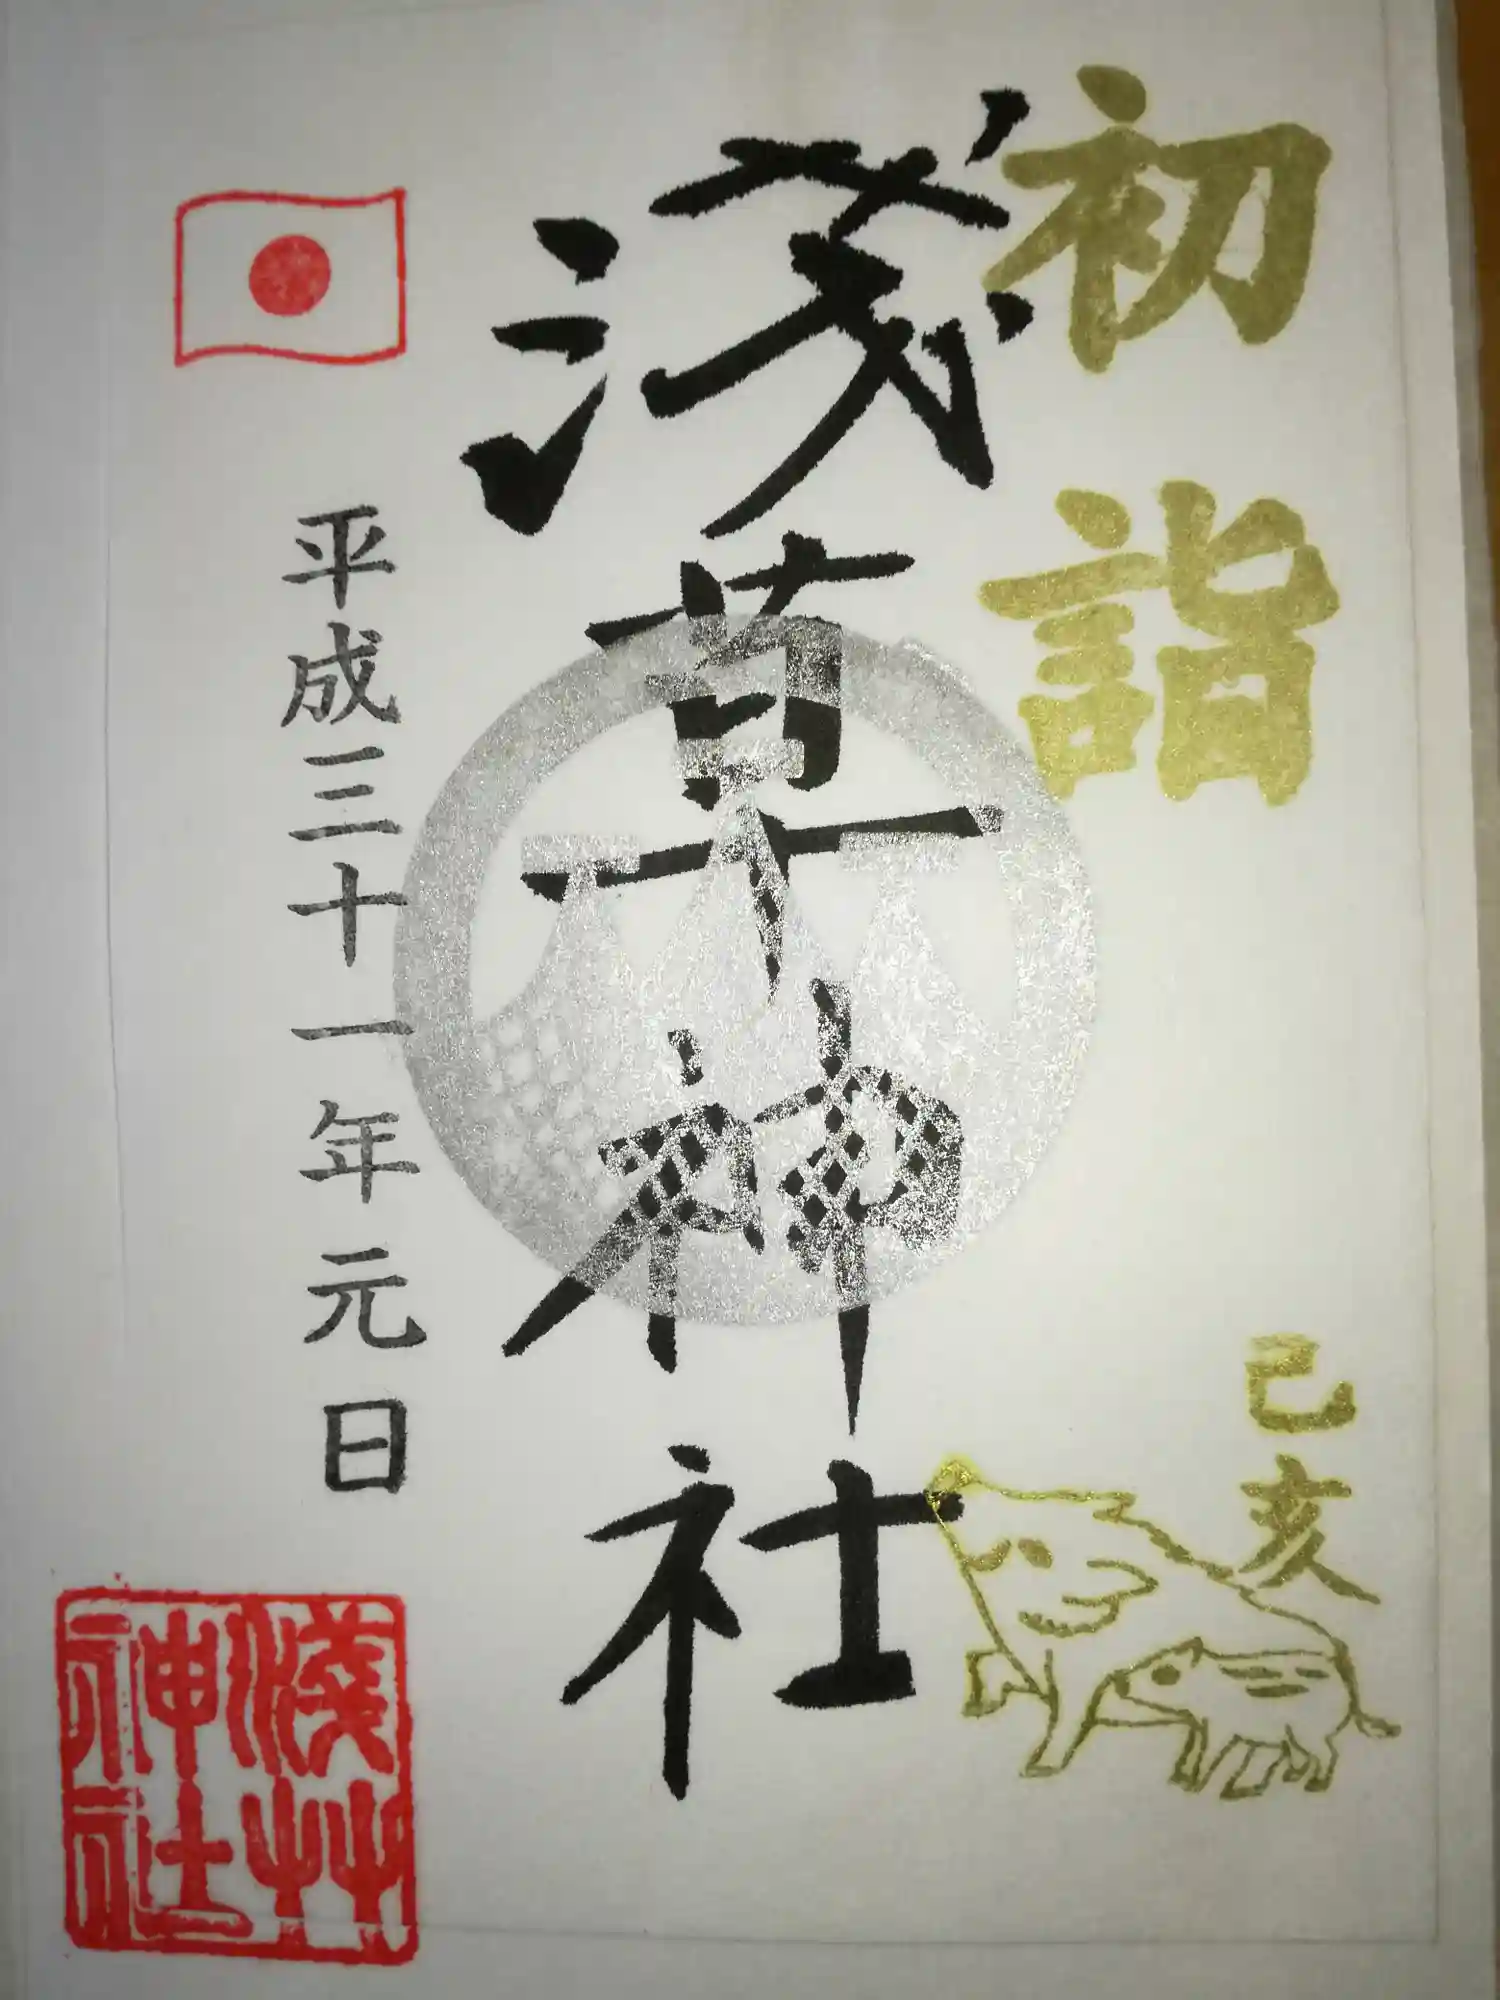 初詣
己亥
浅草神社
平成三十一年元日
淺艸
神社